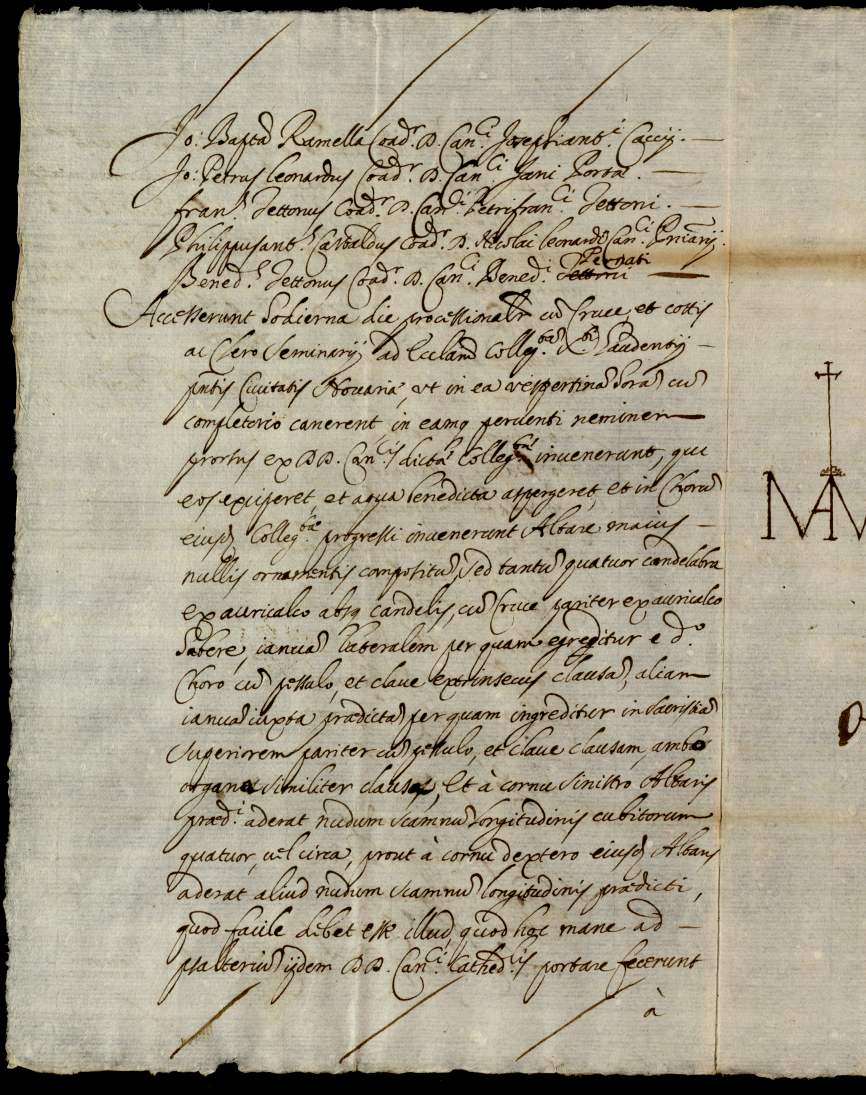 Jo: Bapta Ramella Coadr. D. Canci. Josephianti. Caccij. —
Jo: Petrus Leonardus Coadr. D. Canci. Jani Porta. —
frans. Tettonus Coadr. D. Canci. Petrifranci. Tettoni. —
Philippusants. Castaldus Coadr. D. Nicolai Leonardi Canci.
Pernati
Beneds. Tettonus Coadr. D. Canci. Benedi. Tettoni —
Accesserunt hodierna die processionalr cu Cruce, et cottis
ac Clero Seminarij ad Eccliam Collegtam Sti Gaudentij —
pntis Civitatis Novariae, ut in ea vespertina hora cu
completorio canerent in eamq perventi neminem
prorsus ex DD. Cancis dictae Collegtae invenerunt, qui
eos exciperet, et aqua benedicta aspergeret, et in Choru
eiusd Collegtae progressi invenerunt Altare maius —
nullis ornamentis compositu, sed tantu quatuor candelabra
ex auricalco absq candelis, cu Cruce pariter ex auricalco
habere, ianua lateralem per quam egreditur e do.
Choro cu pessulo, et clave extrinsecus clausa, aliam
ianua iuxta praedicta per quam ingreditur in sacristia
superiorem pariter cu pessulo, et clave clausam, ambo
organa similiter clausa, et à cornu sinistro Altaris
praedi. aderat nudum scamnu longitudinis cubitorum
quatuor, vel circa, prout à cornu dextero eiusd Altaris
aderat aliud nudum scamnu longitudinis praedicti,
quod facile debet esse illud, quod hoc mane ad —
psalteriu ijdem DD. Canci. Cathedlis portare fecerunt
à